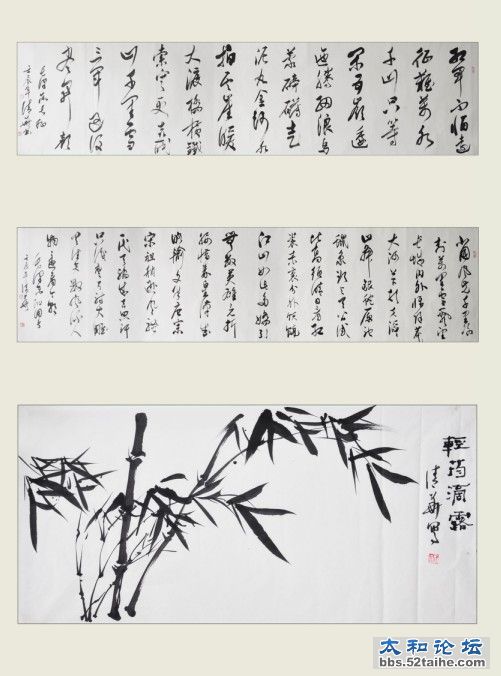 红军不怕远
征难万水
千山只等
闲五岭逶
迤腾细浪乌
蒙磅礴走
泥丸金沙水
拍云崖暖
大渡桥横铁
索寒更喜岷
山千里雪
三军过后
尽开颜
毛泽东长征
壬辰年清华书
北国风光千里冰
封万里雪飘望
长城内外惟余莽
大河上下顿失滔
山舞银蛇原驰
蜡象欲与天公试
比高须晴日看红
装素裹分外妖娆
江山如此多娇引
无数英雄竞折
腰惜秦皇汉武
略输文采唐宗
宋祖稍逊风骚
一代天骄成吉思汗
只识弯弓射大雕
俱往矣数风流人
物还看今朝
毛泽东沁园春
壬辰年清华
輕筠滴露
清華写
太和论坛
bbs.52taihe.com